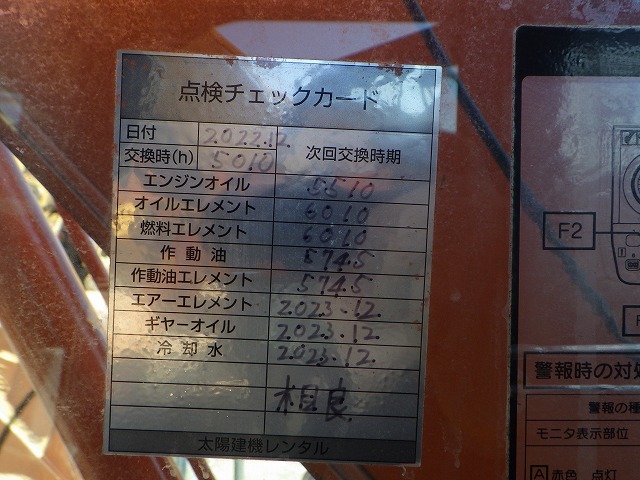 点検チェックカード
日付 2022.12.
交換時(h) 5010 次回交換時期
エンジンオイル 5510
オイルエレメント 6010
燃料エレメント 6010
作動油 5745
作動油エレメント 5745
エアーエレメント 2023.12.
ギヤーオイル 2023.12.
冷却水 2023.12.
相良
太陽建機レンタル
F2
警報時の対処
警報の種
モニタ表示部位
A 赤色 点灯